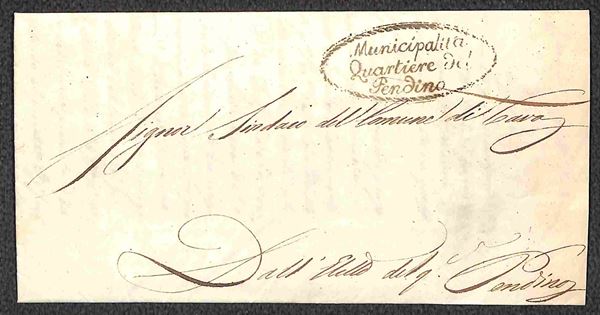 Municipalità
Quartiere del
Pendino
Signor Sindaco del Comune di Cava
Dall'Eletto del q.re Pendino